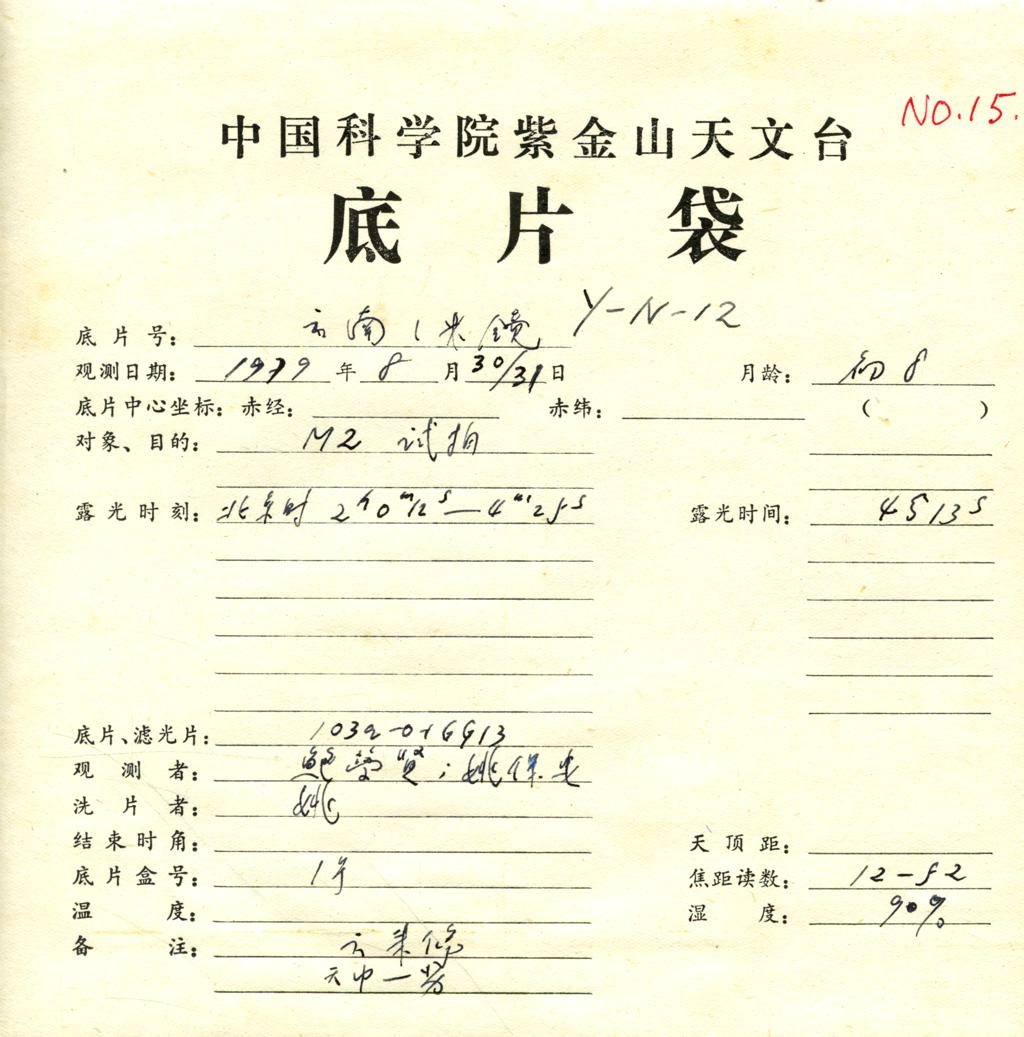 NO.15.
中国科学院紫金山天文台
底片袋
底片号: 云南1米镜 Y-N-12
观测日期: 1979年8月30/31日 月龄: 初8
底片中心坐标: 赤经: 赤纬: ( )
对象、目的: M2 试拍
露光时刻: 北京时 2h0m12s—4m25s 露光时间: 4分13s
底片、滤光片: 103a-0+GG13
观测者: 鲍梦贤; 姚保安
洗片者: 姚
结束时角: 天顶距:
底片盒号: 1号 焦距读数: 12-52
温度: 湿度: 90%
备注: 云来
天中一劳